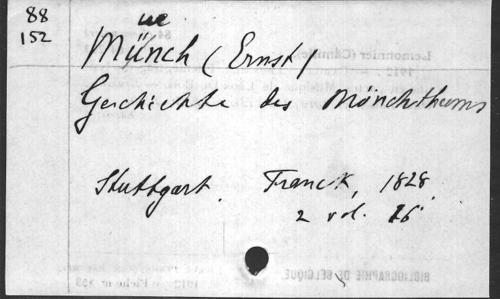 88
152
ue
Münch (Ernst)
Geschichte des Mönchthums
Stuttgart. Franck, 1828
2 vol. 16°
BIBLIOGRAPHIE DE BELGIQUE